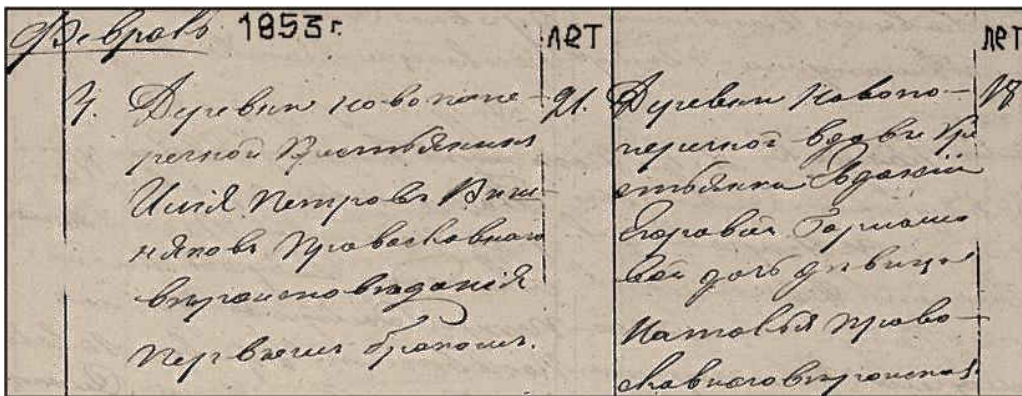 Февраль 1853 г.
лет
лет
3. Деревни Новопопе-
речной Крестьянинъ
Илiя Петровъ Виш-
няковъ Православнаго
вѣроисповѣданiя
первымъ бракомъ.
21.
Деревни Новопо-
перечной вдовы кре
стьянки Евдокiи
Егоровой
дочь дѣвица
Наталья право-
славнаго вѣроиспов.
18